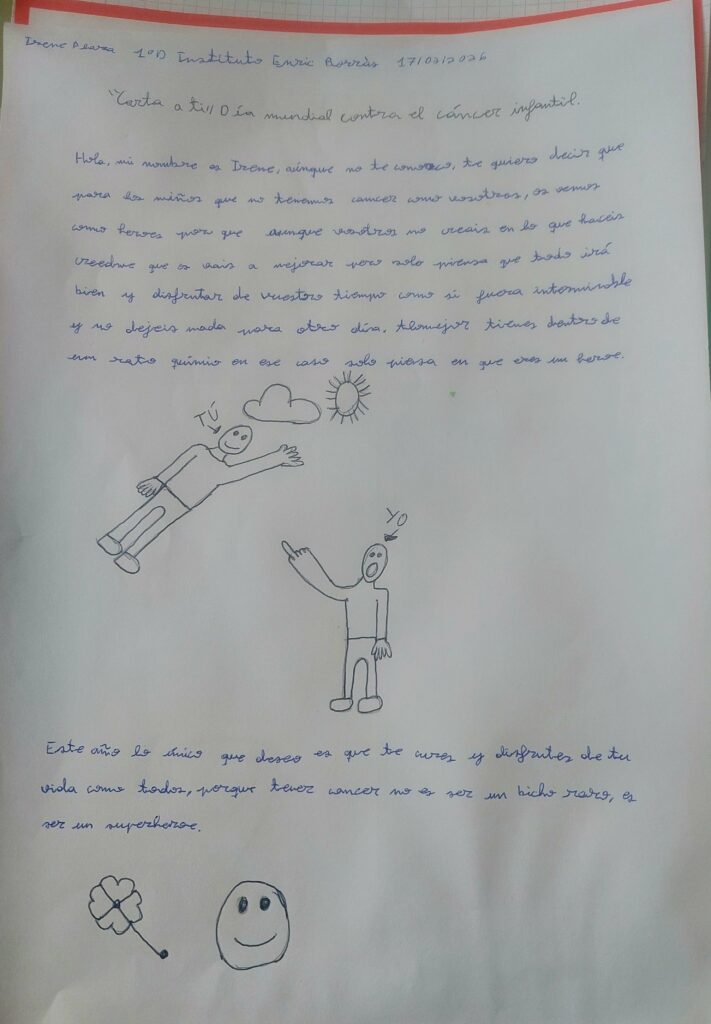 Irene 1ºD Instituto Enric Borràs 17/02/2026
"Carta a ti" Día mundial contra el cáncer infantil.
Hola, mi nombre es Irene, aúnque no te conozco, te quiero decir que
para los niños que no tenemos cancer como vosotros, os vemos
como heroes por que aunque vosotros no creais en lo que haceis
creedme que os vais a mejorar pero solo piensa que todo irá
bien y disfrutar de vuestro tiempo como si fuera interminable
y no dejeis nada para otro día. Alomejor tienes dentro de
un rato quimio en ese caso solo piensa en que eres un heroe.
TÚ
YO
Este año lo único que deseo es que te cures y disfrutes de tu
vida como todos, porque tener cancer no es ser un bicho raro, es
ser un superheroe.